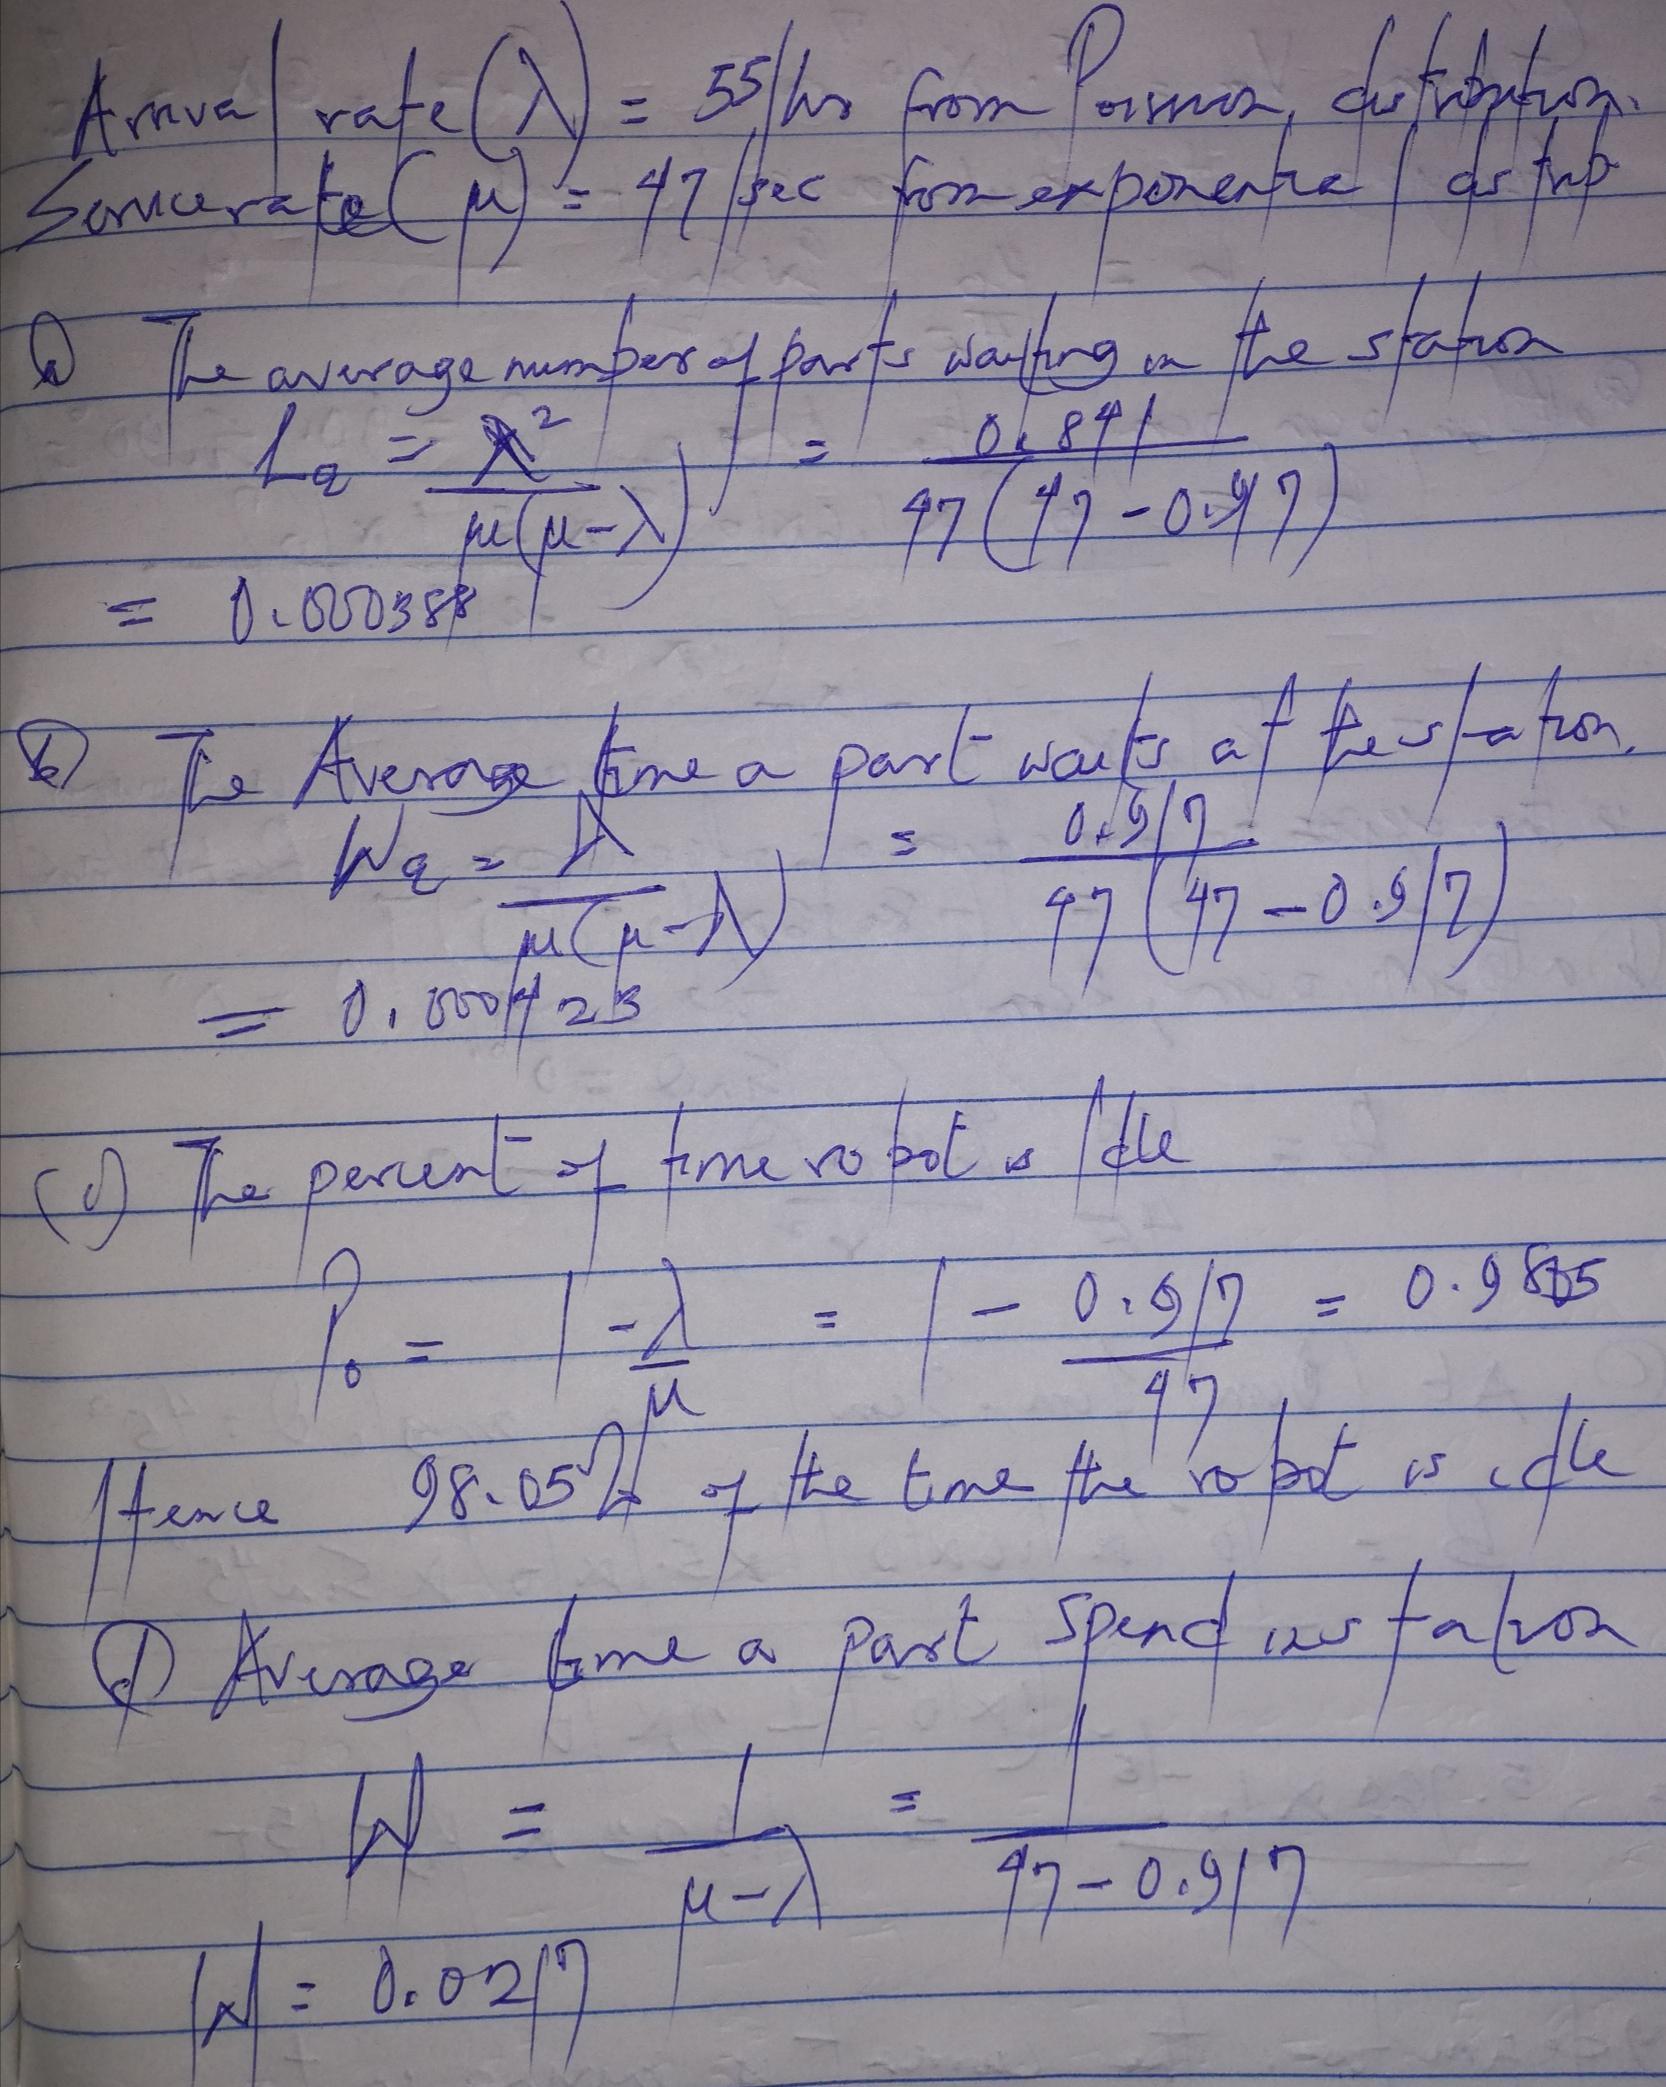 Arrival rate (λ) = 55/hr from Poisson distribution.
Service rate (μ) = 47/sec from exponential distrib
a) The average number of parts waiting in the station
Lq = λ² / μ(μ-λ) = 0.841 / 47(47-0.917)
= 0.000388
b) The Average time a part waits at the station.
Wq = λ / μ(μ-λ) = 0.917 / 47(47-0.917)
= 0.000423
(c) The percent of time robot is Idle
P₀ = 1 - λ/μ = 1 - 0.917/47 = 0.9805
Hence 98.05% of the time the robot is idle
d) Average time a part spend in station
W = 1 / μ-λ = 1 / 47-0.917
W = 0.0217